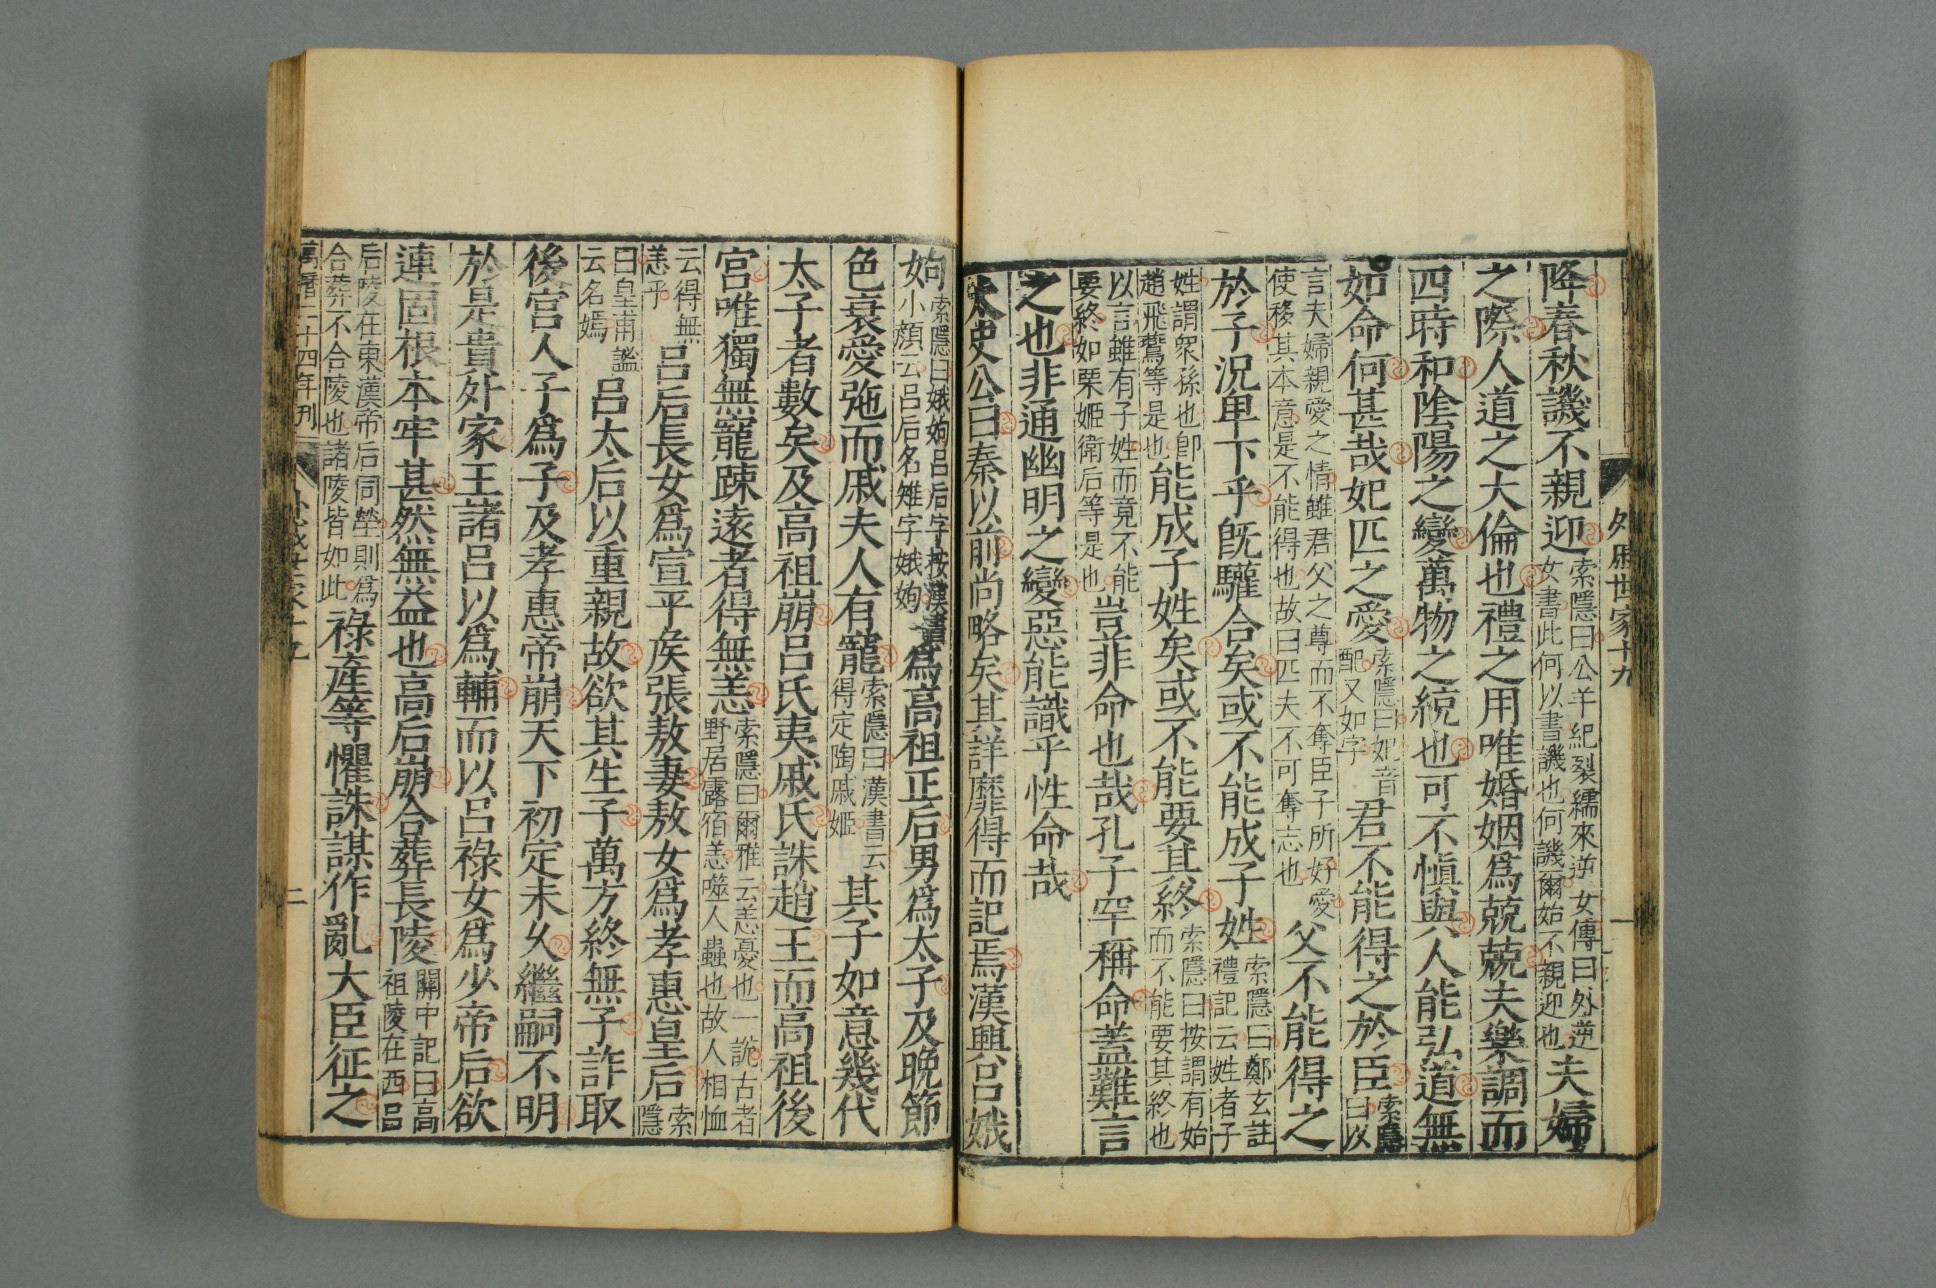 外戚世家十九
一
降春秋譏不親迎索隱曰公羊紀裂繻來逆女傳曰外逆女書此何以書譏也何譏爾始不親迎也夫婦
之際人道之大倫也禮之用唯婚姻爲兢兢夫樂調而
四時和陰陽之變萬物之統也可不愼與人能弘道無
如命何甚哉妃匹之愛索隱曰妃音配又如字君不能得之於臣索隱曰以
言夫婦親愛之情雖君父之尊而不奪臣子所好愛使移其本意是不能得也故曰匹夫不可奪志也父不能得之
於子況卑下乎旣驩合矣或不能成子姓索隱曰鄭玄註禮記云姓者子
姓謂衆孫也卽趙飛鷰等是也能成子姓矣或不能要其終索隱曰按謂有始而不能要其終也
以言雖有子姓而竟不能要終如栗姬衛后等是也豈非命也哉孔子罕稱命蓋難言
之也非通幽明之變惡能識乎性命哉
太史公曰秦以前尚略矣其詳靡得而記焉漢興呂娥
姁索隱曰娥姁呂后字按漢書小顏云呂后名雉字娥姁爲高祖正后男爲太子及晚節
色衰愛弛而戚夫人有寵索隱曰漢書云得定陶戚姬其子如意幾代
太子者數矣及高祖崩呂氏夷戚氏誅趙王而高祖後
宮唯獨無寵踈遠者得無恙索隱曰爾雅云恙憂也一說古者野居露宿恙噬人蟲也故人相恤
云得無恙乎呂后長女爲宣平侯張敖妻敖女爲孝惠皇后索隱
曰皇甫謐云名嫣呂太后以重親故欲其生子萬方終無子詐取
後宮人子爲子及孝惠帝崩天下初定未久繼嗣不明
於是貴外家王諸呂以爲輔而以呂祿女爲少帝后欲
連固根本牢甚然無益也高后崩合葬長陵關中記曰高祖陵在西呂
后陵在東漢帝后同塋則爲合葬不合陵也諸陵皆如此祿產等懼誅謀作亂大臣征之
萬曆二十四年刊
外戚世家十九
二